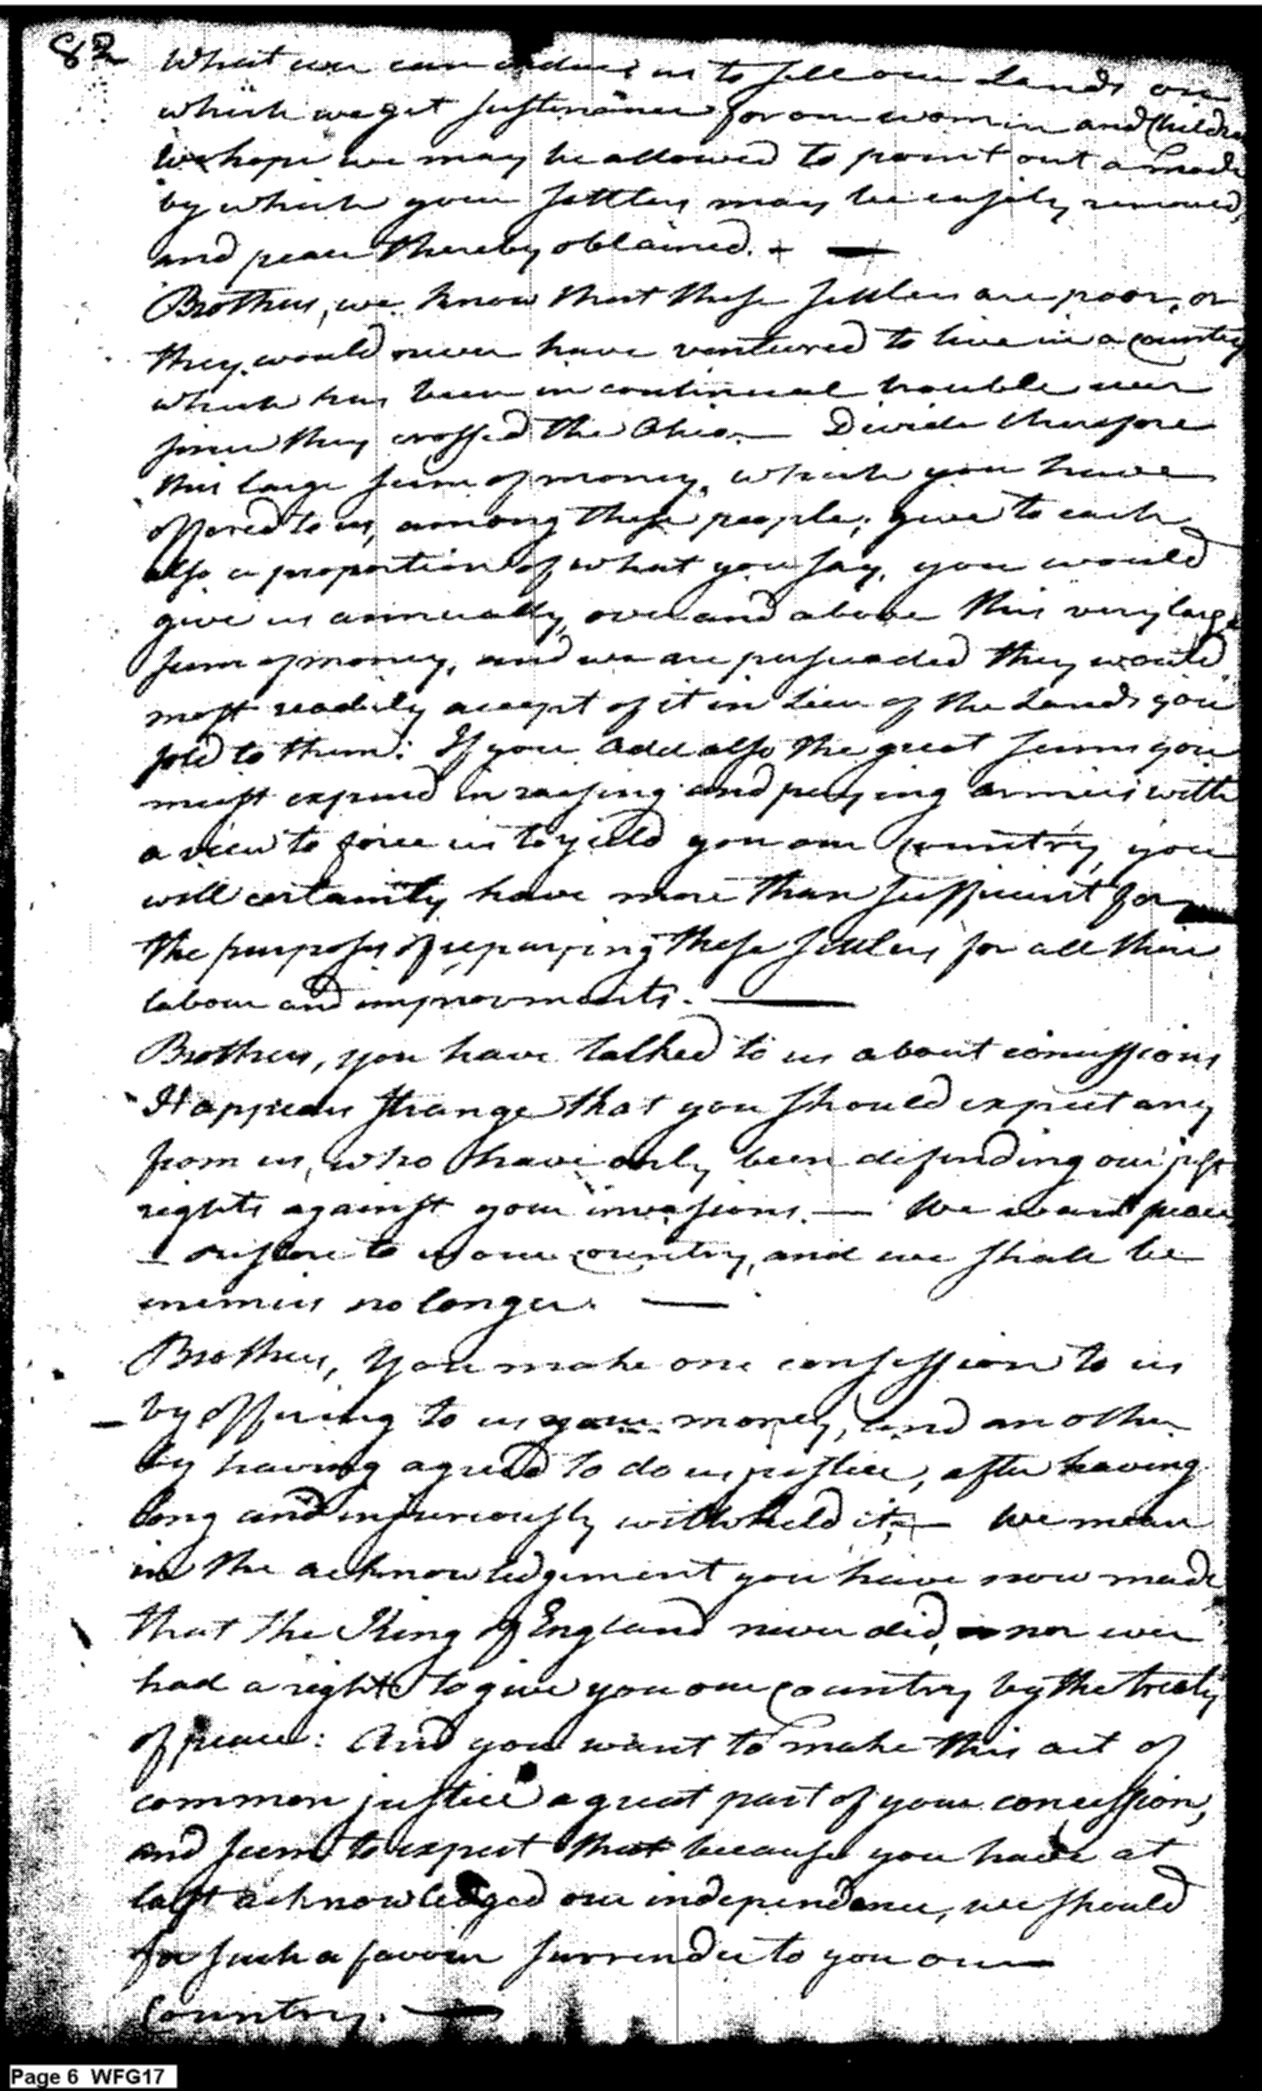 82
What ever can induce us to sell our Lands on
which we get sustinance for our women and Children
We hope we may be allowed to point out a mode
by which your settlers may be easily removed,
and peace thereby obtained. + —
Brothers, we know that these settlers are poor, or
they would never have ventured to live in a country
which has been in continual trouble ever
since they crossed the Ohio. — Divide therefore
this large sum of money, which you have
offered to us, among these people; give to each
also a proportion of what you say, you would
give us annually, over and above this very large
sum of money, and we are persuaded they would
most readily accept of it in lieu of the Lands you
sold to them: If you add also the great sums you
must expend in raising and paying armies with
a view to force us to yield you our Country, you
will certainly have more than sufficient for
the purposes of repaying these settlers for all their
labour and improvments. —
Brothers, you have talked to us about concessions
It appears strange that you should expect any
from us, who have only been defending our just
rights against your invasions. — We want peace
— restore to us our country, and we shall be
enemies no longer. —
Brothers, You make one consession to us
— by offering to us your money, and another
by having agreed to do us justice, after having
long and injuriously withheld it; — We mean
in the acknowledgement you have now made
that the King of England never did, nor ever
had a right to give you our Country by the treaty
of peace: And you want to make this act of
common justice a great part of your concession,
and seem to expect that because you have at
last acknowledged our independence, we should
for such a favour surrender to you our
Country. —
Page 6 WFG17